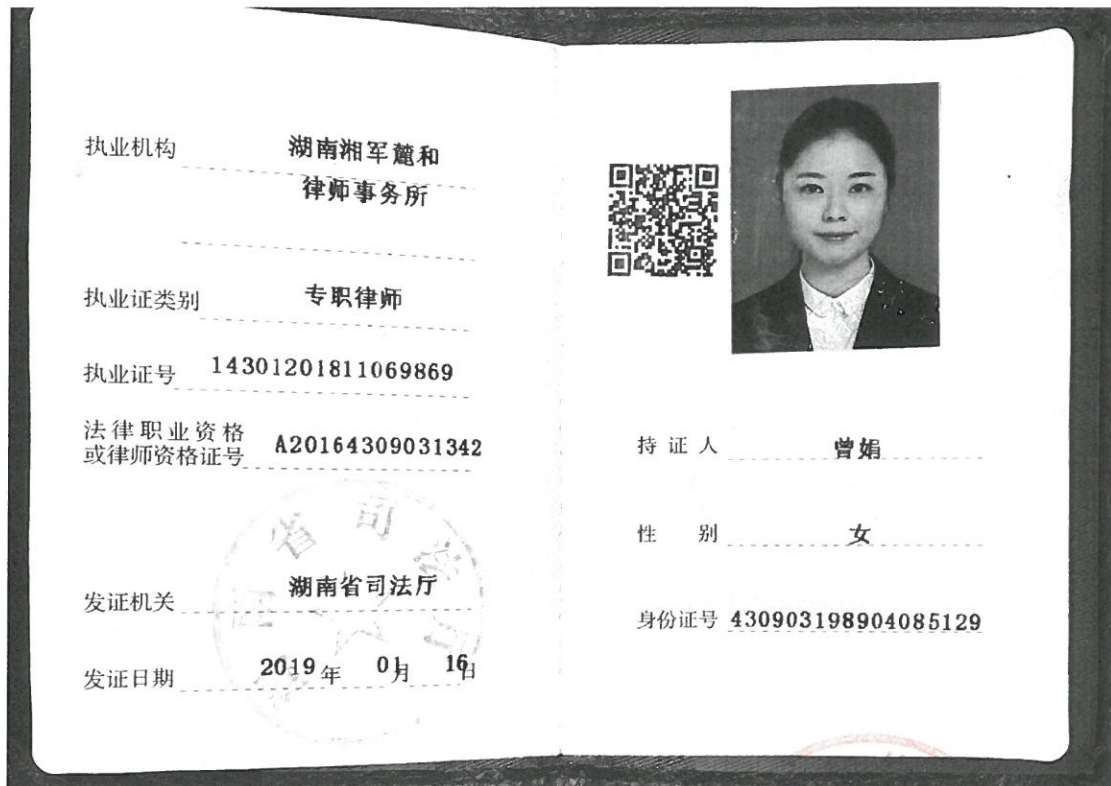 执业机构 湖南湘军麓和
律师事务所
执业证类别 专职律师
执业证号 14301201811069869
法律职业资格
或律师资格证号 A20164309031342
发证机关 湖南省司法厅
发证日期 2019年 01月 16日
持证人 曾娟
性别 女
身份证号 430903198904085129